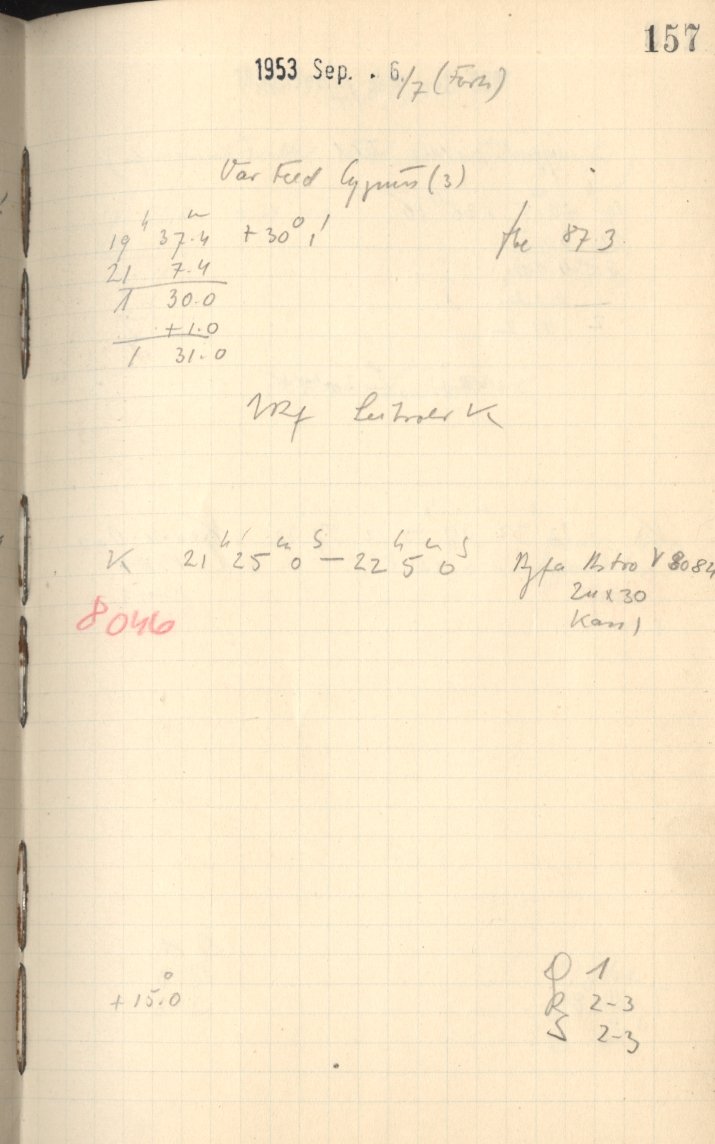 157
1953 Sep. . 6/7 (Forts)
Var Feld Cygnus (3)
19 h 37.4 m +30° 1' 873
21 7.4
1 30.0
+1.0
1 31.0
K
K 21 h 25 m 0 s — 22 h 5 m 0 s Agfa Astro V 8084
24 x 30
8046 Kass 1
+15.0° D 1
R 2-3
S 2-3